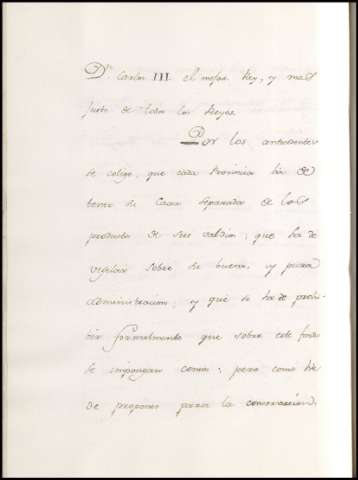 Dn. Carlos III. el mejor Rey, y mas
justo de todos los Reyes.
Por los antecedentes
se colige, que cada Provincia ha de
tener su Caxa separada de los
productos de sus valdios; que ha de
vigilar sobre su buena, y pura
administracion; y que se ha de prohi-
bir formalmente que sobre este fondo
se impongan censos: pero como he
de proponer para la conservacion,